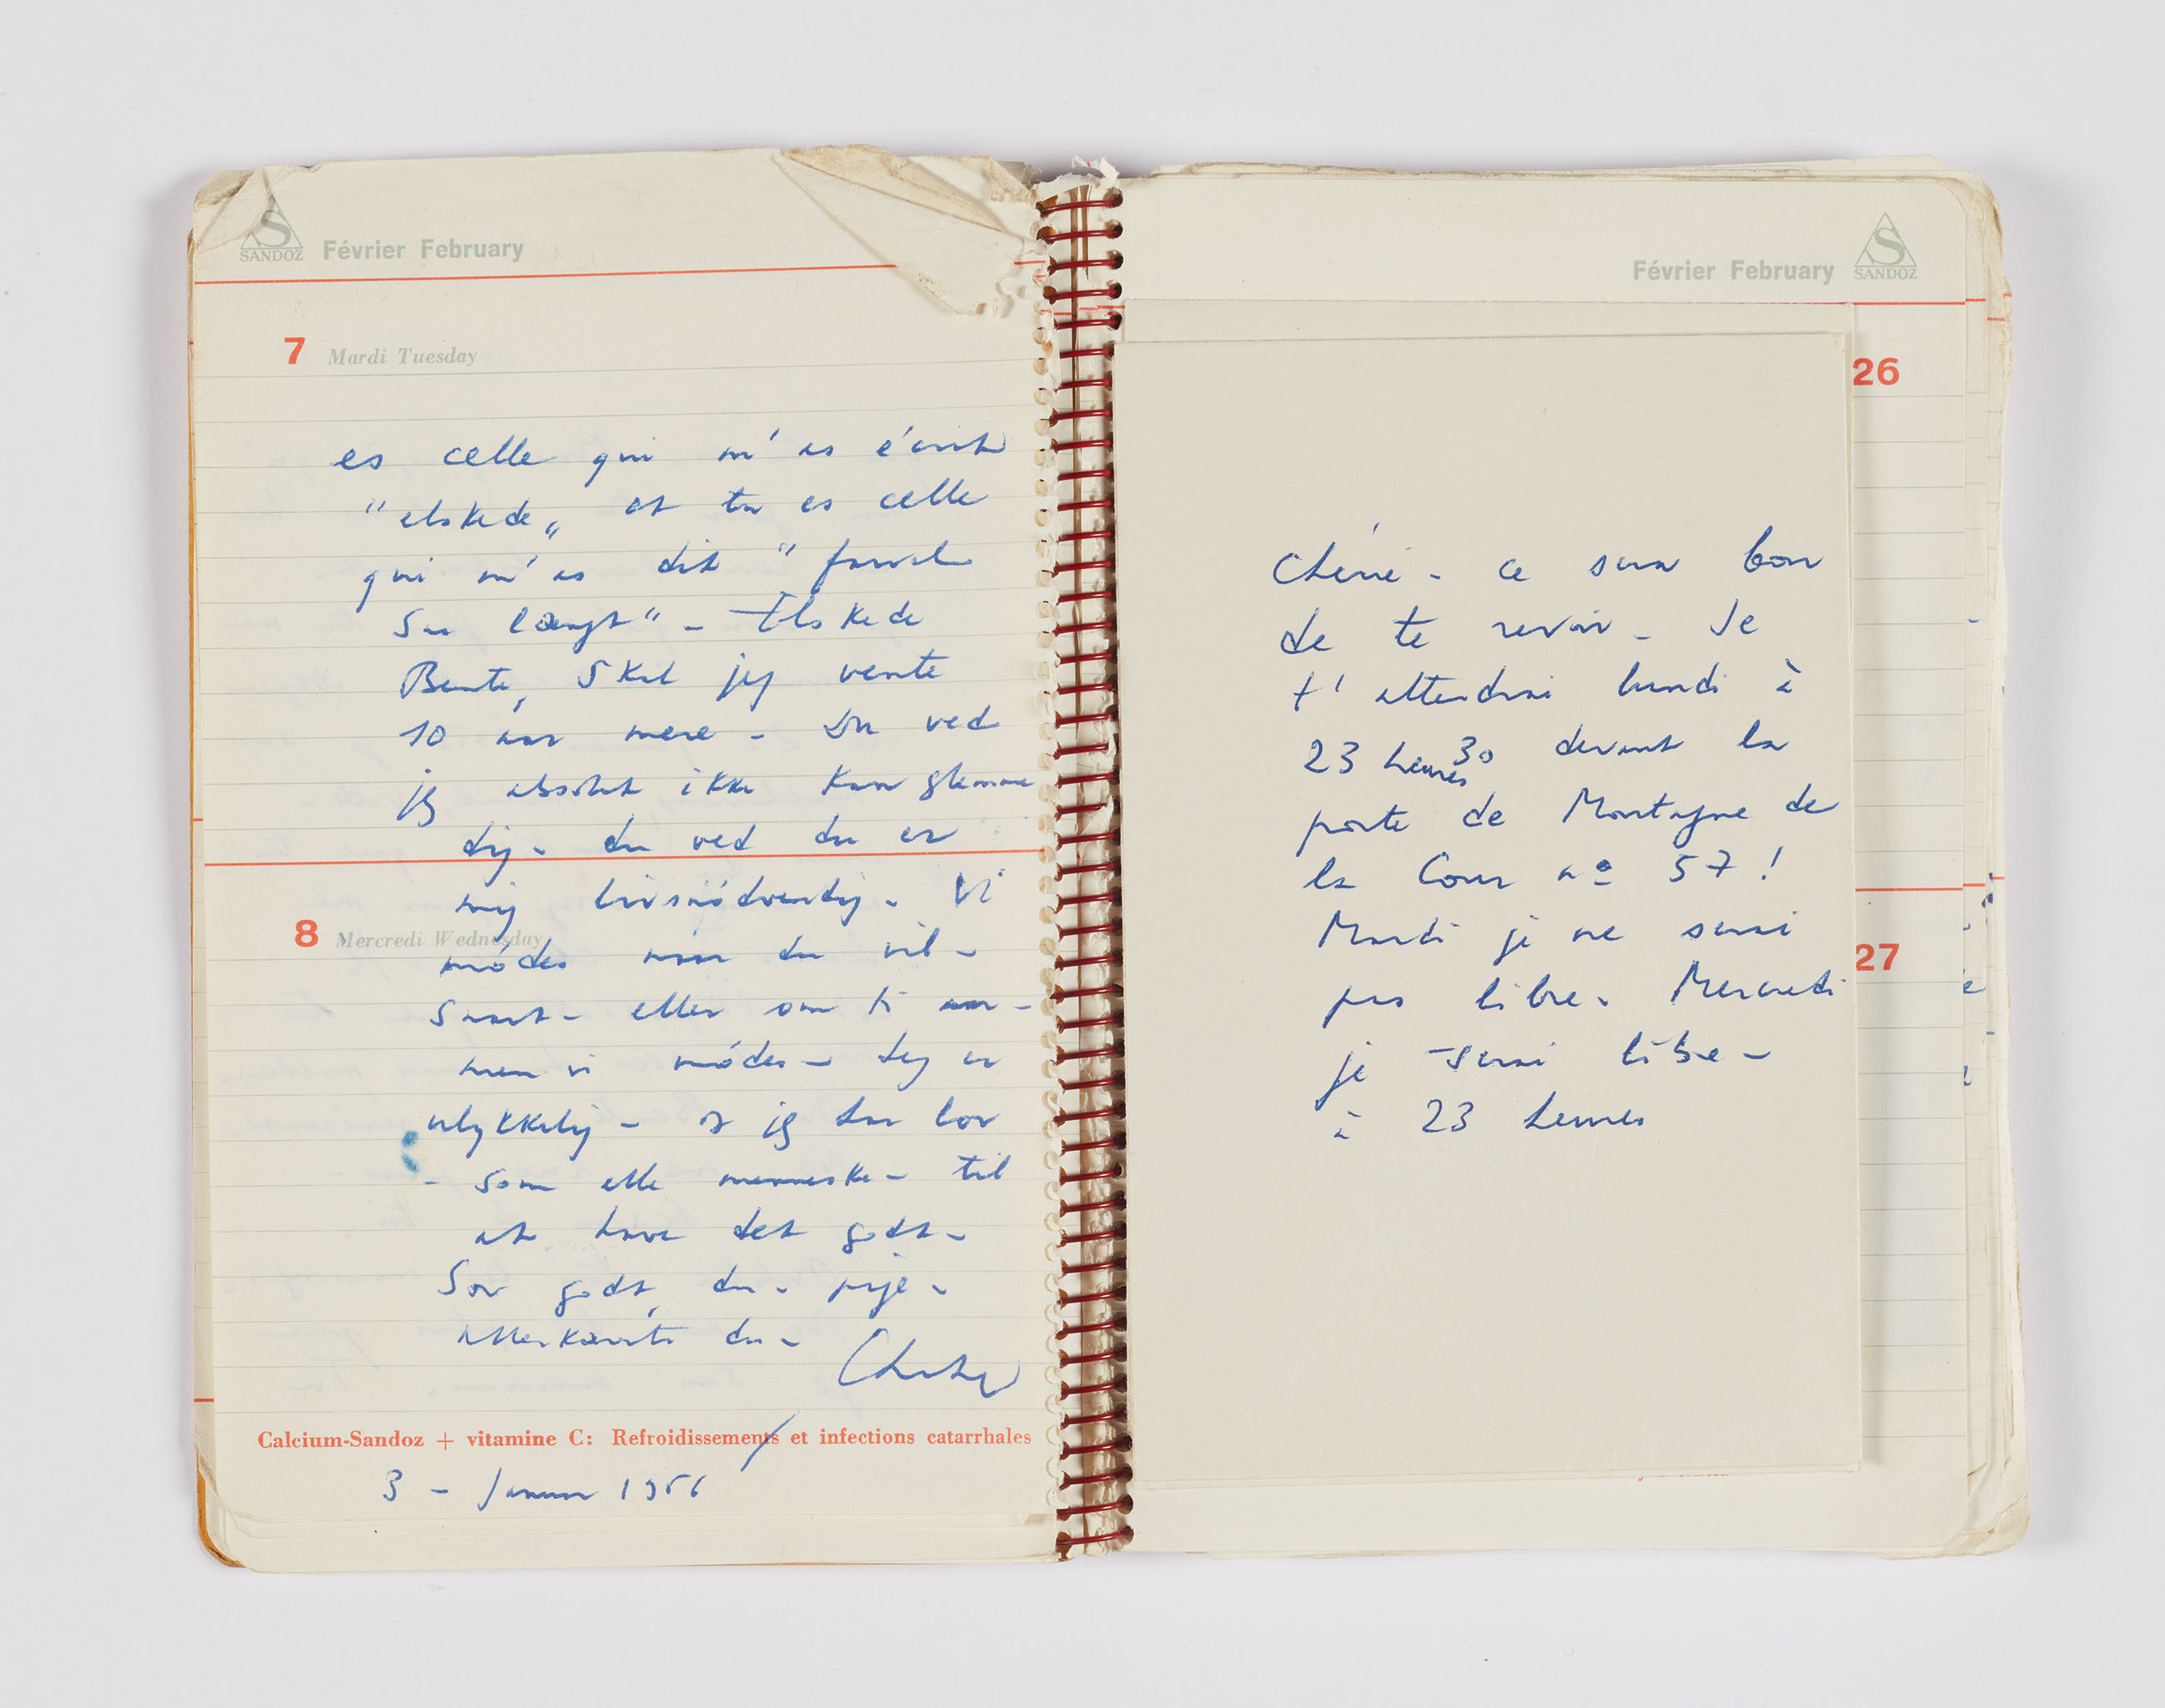 SANDOZ Février February
7 Mardi Tuesday
es celle qui m'as écrit
"elskede„ et tu es celle
qui m'as dit "farvel
saa længt" - Elskede
Bente, skal jeg vente
10 aar mere - Du ved
jeg absolut ikke kan glemme
dig - du ved du er
mig livsnódvendig - Vi
módes naar du vil -
snart - eller om ti aar -
men vi módes - Jeg er
ulykkelig - og jeg har lov
8 Mercredi Wednesday
- som alle menneske - til
at have det godt -
Sov godt, du - pige -
allerkæreste du -
Calcium-Sandoz + vitamine C: Refroidissements et infections catarrhales
3 - Januar 1956
Février February SANDOZ
26
Chérie - ce sera bon
de te revoir - Je
t'attendrai lundi à
23 heures 30 devant la
porte de Montagne de
la Cour nº 57!
Mardi je ne serai
pas libre - Mercredi
27
je serai libre -
à 23 heures